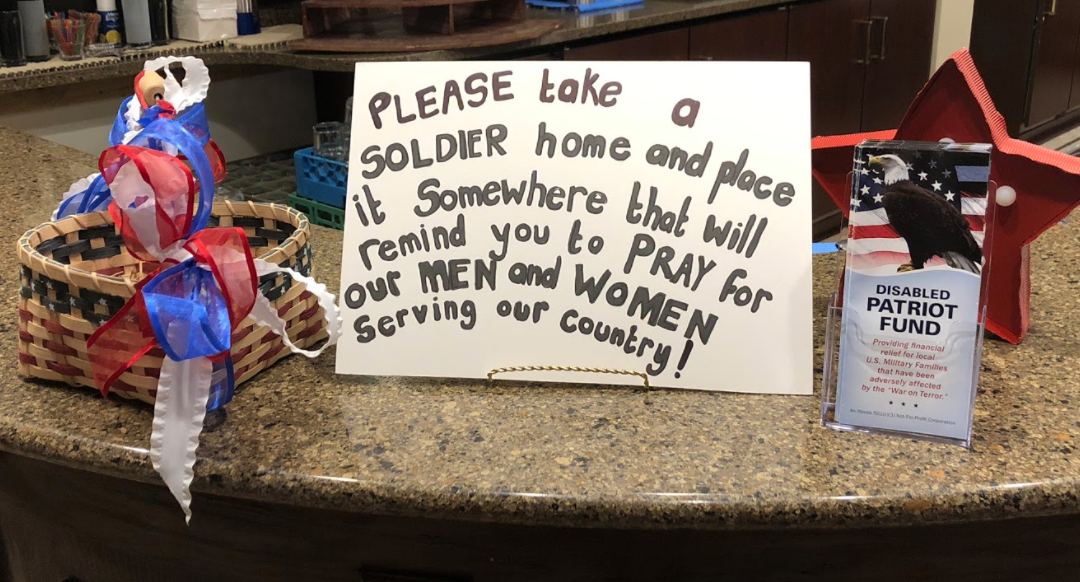 PLEASE take a
SOLDIER home and place
it Somewhere that will
remind you to PRAY for
our MEN and WOMEN
Serving our country!
DISABLED
PATRIOT
FUND
Providing financial
relief for local
U.S. Military Families
that have been
adversely affected
by the "War on Terror."
An Illinois 501(c)(3) Not-For-Profit Corporation